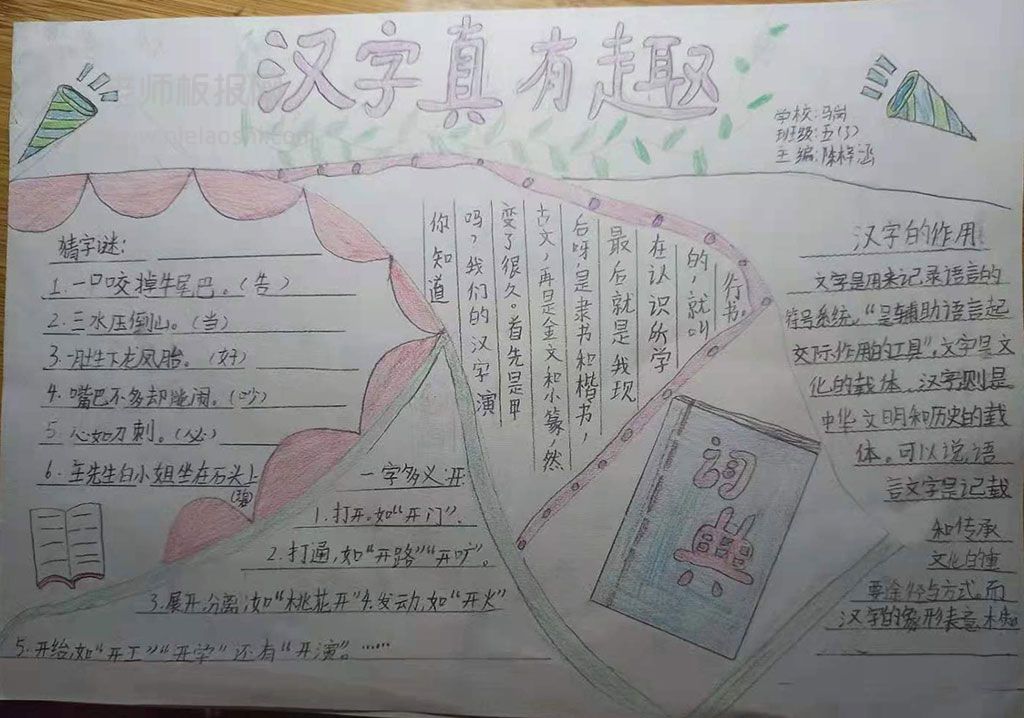 汉字真有趣
学校:马岗
班级:五(3)
主编:陈梓涵
猜字谜:
1.一口咬掉牛尾巴。(告)
2.三水压倒山。(当)
3.一胎生下龙凤胎。(好)
4.嘴巴不多却能闹。(吵)
5.心如刀刺。(必)
6.王先生白小姐坐在石头上
(碧)
你知道
吗,我们的汉字演
变了很久。首先是甲
古文,再是金文和小篆,然
后呀,是隶书和楷书,
最后就是我现
在认识所学
的,就叫
行书。
词典
一字多义:开
1.打开。如“开门”.
2.打通,如“开路”“开矿”。
3.展开分离,如“桃花开”4.发动,如“开火”
5.开始,如“开工”“开学”还有“开演”。……
汉字的作用
文字是用来记录语言的
符号系统,“是辅助语言起
交际作用的工具”,文字是文
化的载体。汉字则是
中华文明和历史的载
体。可以说,语
言文字是记载
和传承
文化的重
要途径与方式。而
汉字的象形表意